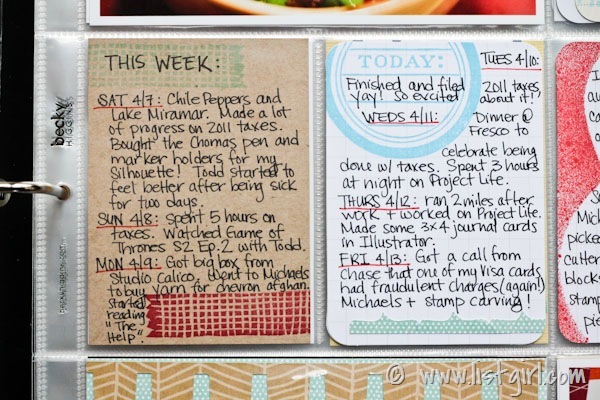 becky
HIGGINS
THIS WEEK:
SAT 4/7: Chile Peppers and
Lake Miramar. Made a lot
of progress on 2011 taxes.
Bought the Chomas pen and
marker holders for my
Silhouette! Todd started to
feel better after being sick
for two days.
SUN 4/8: spent 5 hours on
taxes. Watched Game of
Thrones S2 Ep. 2 with Todd.
MON 4/9: Got big box from
Studio Calico, went to Michaels
to buy yarn for chevron afghan.
Started
reading
"The
Help".
TODAY:
TUES 4/10:
Finished and filed 2011 taxes
yay! So excited about it!
WEDS 4/11: Dinner @
Fresco to
celebrate being
done w/ taxes. Spent 3 hours
at night on Project Life.
THURS 4/12: ran 2 miles after
work + worked on Project Life.
Made some 3x4 journal cards
in Illustrator.
FRI 4/13: Got a call from
Chase that one of my Visa cards
had fraudulent charges (again!)
Michaels + stamp carving!
picked
cutter
blocks
stamp
pie
© www.listgirl.com